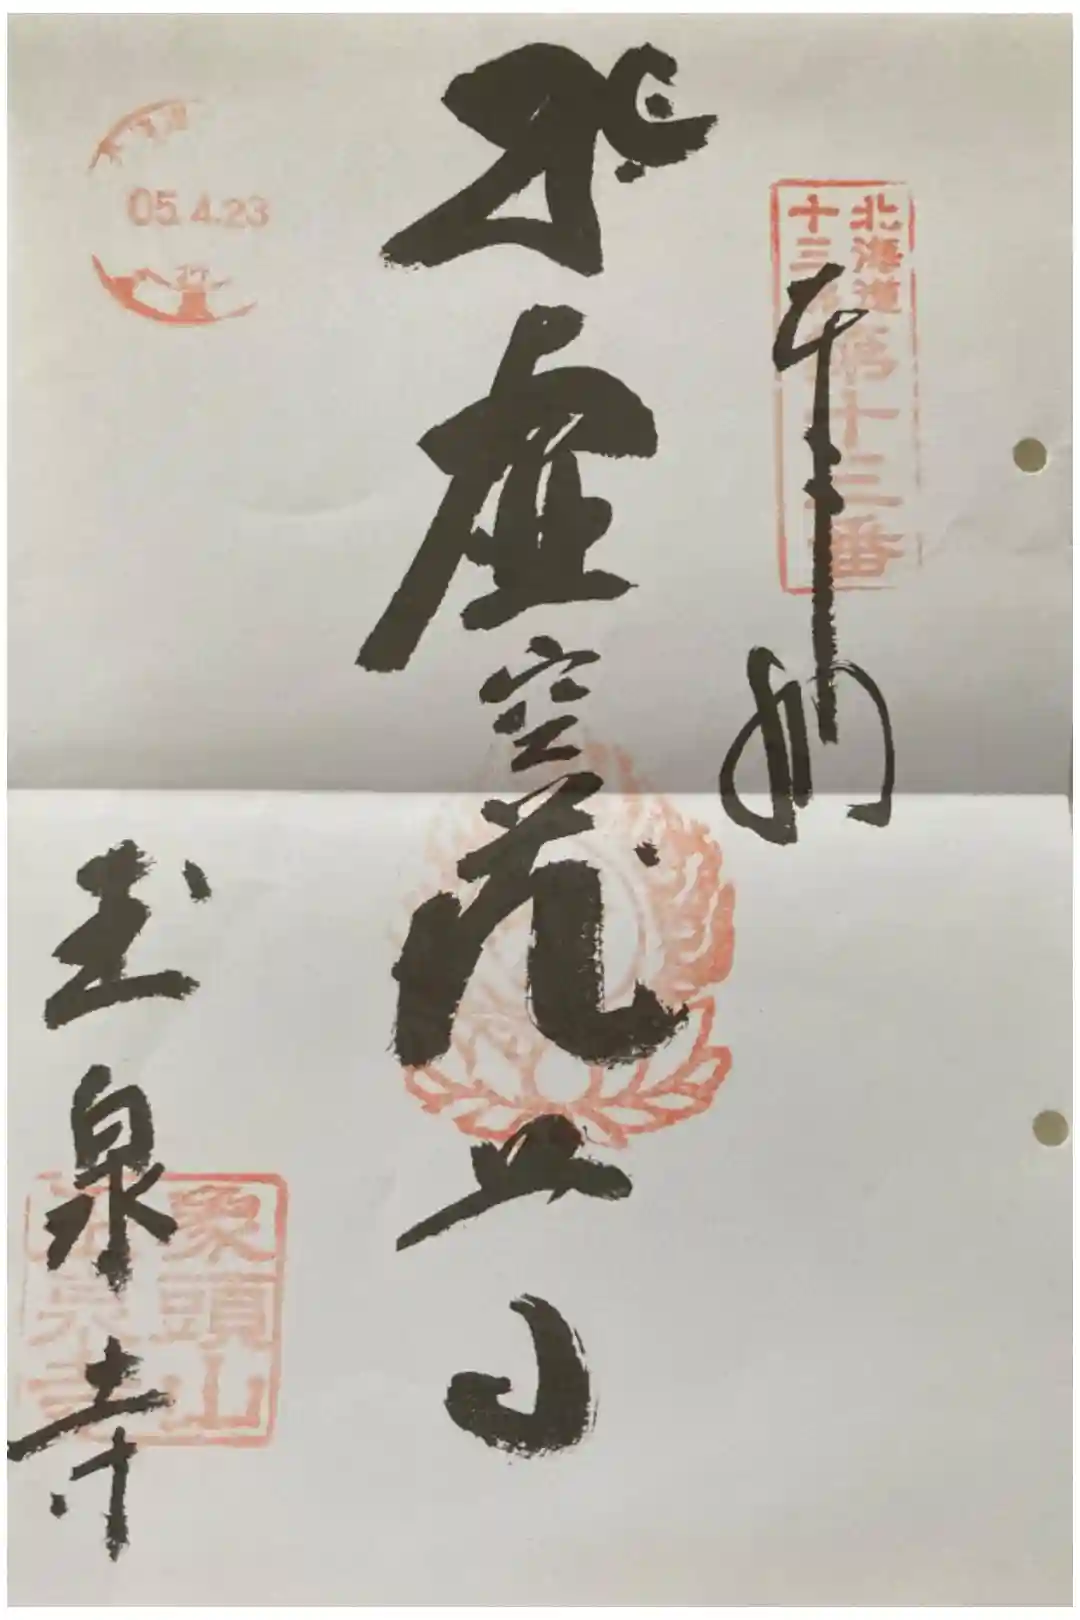 北海道
十三仏
第十三番
奉納
虚空蔵
05.4.23
玉泉寺
象頭山
玉泉寺